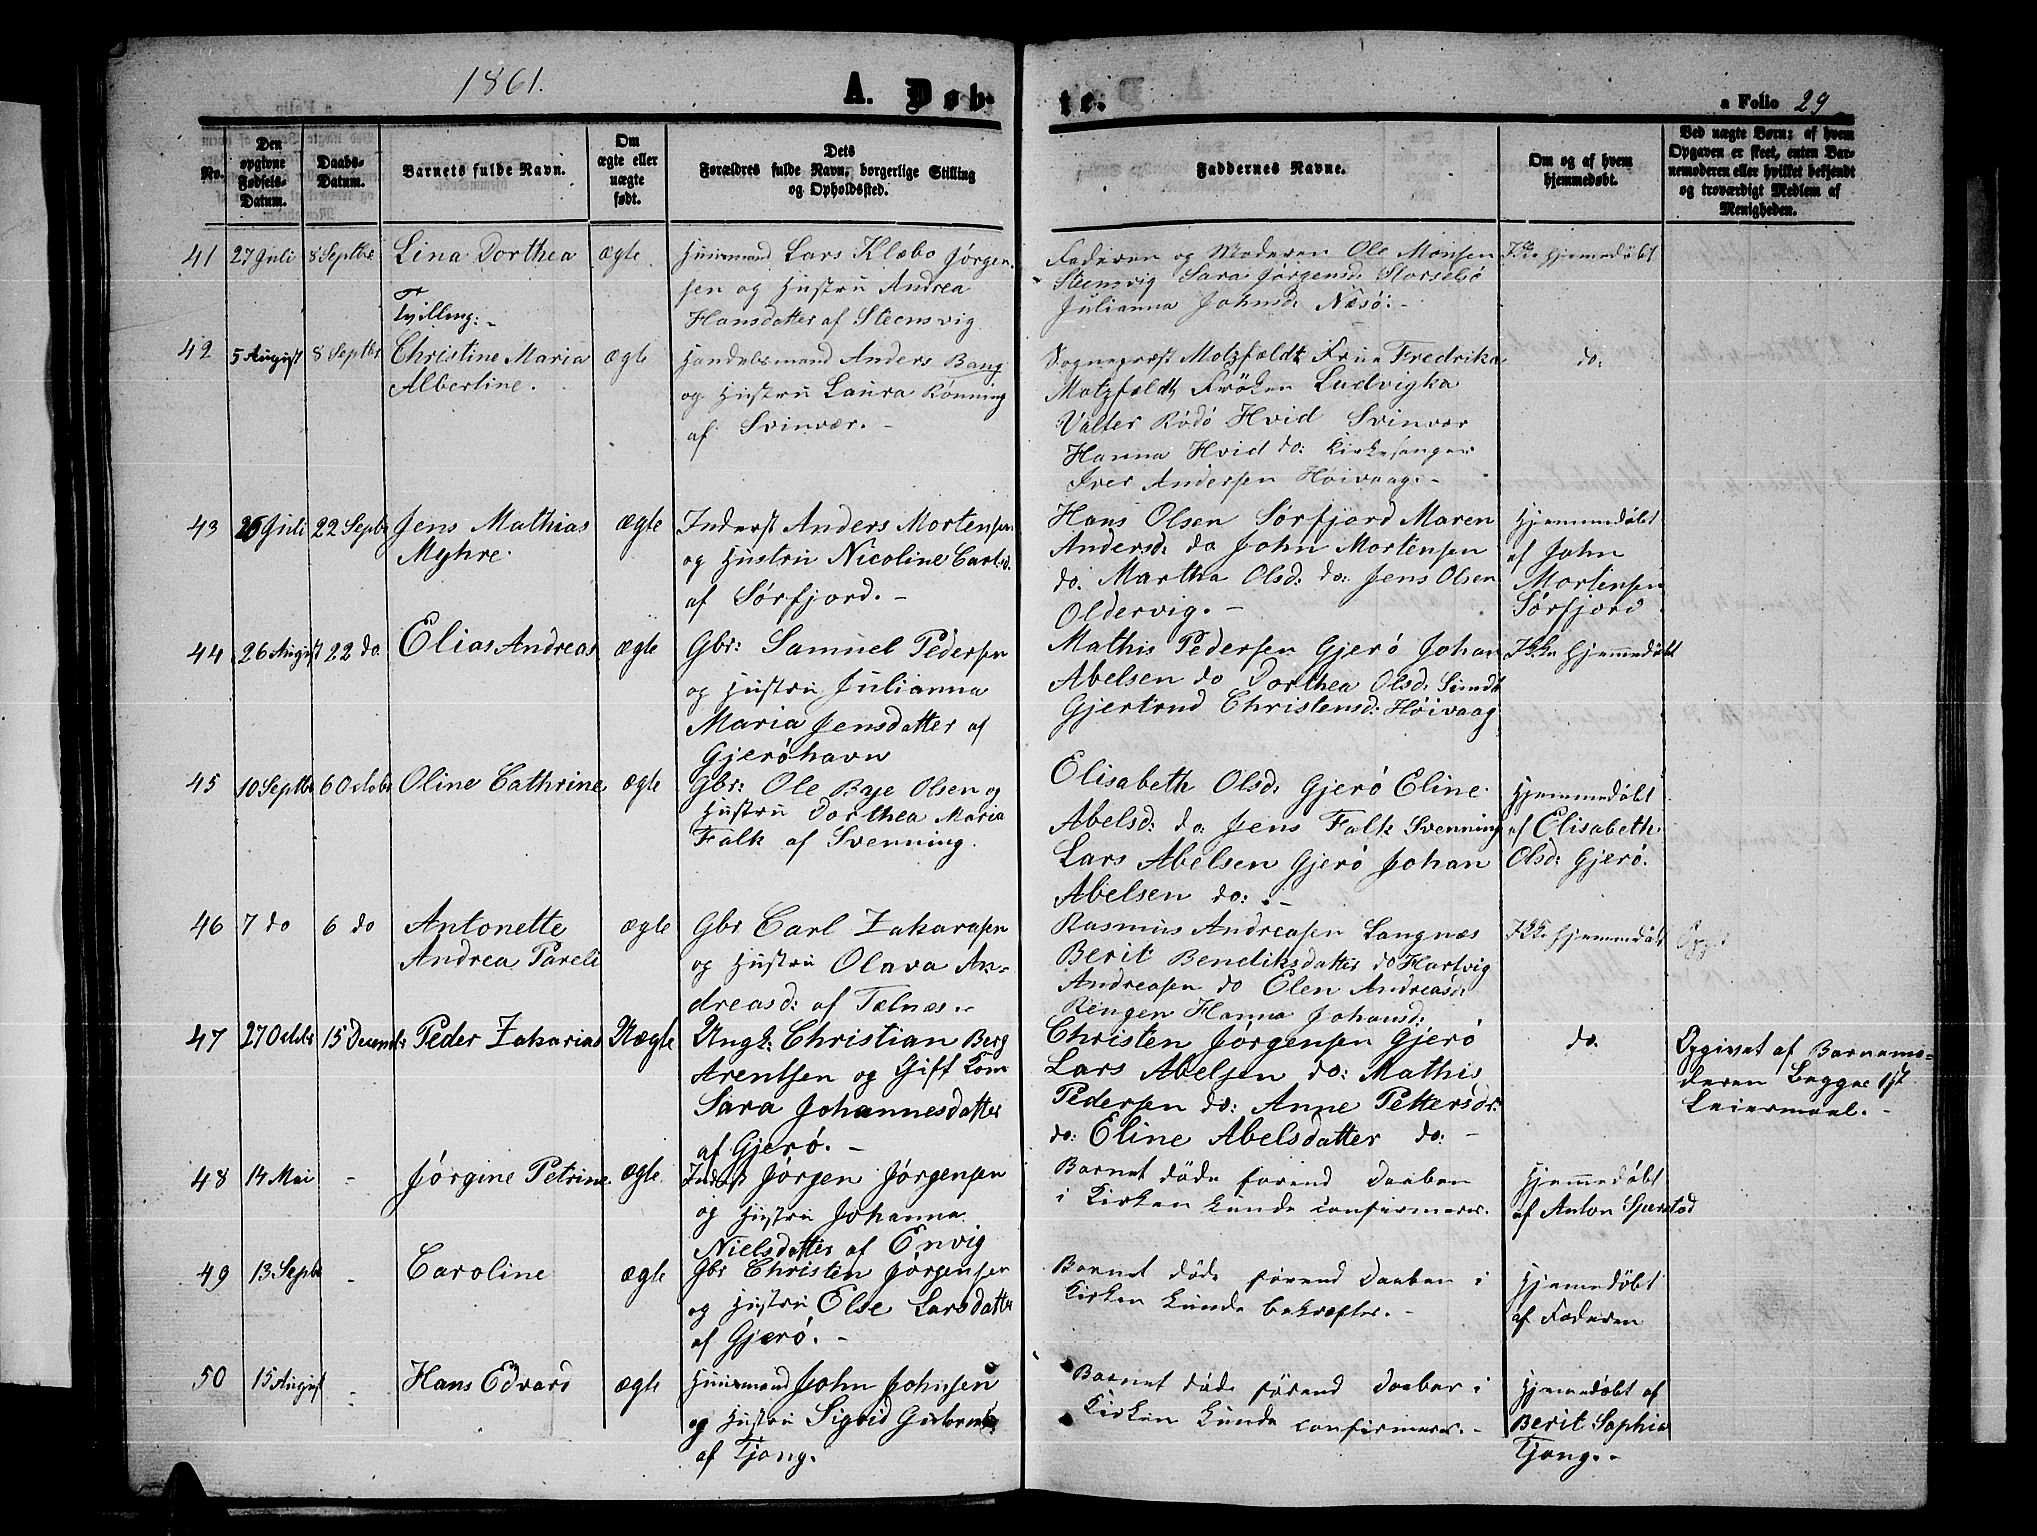 1861.
A. Døb-
te.
a Folio 29
No.
Den opgivne Fødsels-Datum.
Daabs-Datum.
Barnets fulde Navn.
Om ægte eller uægte født.
Dets Forældres fulde Navn, borgerlige Stilling og Opholdssted.
Faddernes Navne.
Om og af hvem hjemmedøbt.
Ved uægte Børn: af hvem Opgaven er skeet, enten Barnemoderen eller hvilket bekjendt og troværdigt Medlem af Menigheden.
41 27 Juli 8 Septbr Lina Dorthea ægte
Tvilling.-
Huusmand Lars Klæbo Jørgen
sen og Hustru Andrea
Hansdatter af Steensvig
Faderen og Moderen Ole Monsen
Steensvig Sara Jørgensd: Storselsö
Julianna Johnsd: Næsö:-
Ikke Hjemmedöbt
42 5 August 8 Septbr Christine Maria ægte
Albertine.
Handelsmand Anders Bang
og Hustru Laura Rönning
af Svinvær.-
Sognepræst Motzfeldt Frue Fredrika
Motzfeldt Fröken Ludvigka
Valter Rödö Hvid Svinvær
Hanna Hvid do: Kirkesanger
Iver Andersen Höivaag.-
do.
43 26 Juli 22 Septbr Jens Mathias ægte
Myhre.
Inderst Anders Mortensen
og Hustru Nicoline Carlsd.
af Sörfjord.-
Hans Olsen Sörfjord Maren
Andersd: do John Mortensen
do. Martha Olsd: do: Jens Olsen
Oldervig.-
Hjemmedöbt
af John
Mortensen
Sörfjord
44 26 August 22 do Elias Andreas ægte
Gbr: Samuel Pedersen
og Hustru Julianna
Maria Jensdatter af
Gjeröhavn
Mathis Pedersen Gjerö Johan
Abelsen do Dorthea Olsd: Sundt
Gjertrud Christensd: Höivaag
Ikke Hjemmedöbt
45 10 Septbr 6 Octobr Oline Cathrine ægte
Gbr: Ole Baje Olsen og
Hustru Dorthea Maria
Falk af Svenning.
Elisabeth Olsd: Gjerö Eline
Abelsd: do: Jens Falk Svenning
Lars Abelsen Gjerö Johan
Abelsen do:.-
Hjemmedöbt
af Elisabeth
Olsd: Gjerö.
46 7 do 6 do Antonette ægte
Andrea Pareli
Gbr Carl Zakarasen
og Hustru Olava An-
dreasd: af Telnæs.-
Rasmus Andreasen Langnæs
Berit Bendiksdatter do Hartvig
Andreasen do Elen Andreasd:
Ringen Hanna Johansd:
Ikke Hjemmedöbt
47 27 Octobr 15 Decemb: Peder Zakarias Uægte
Ungk: Christian Berg
Arentsen og Gift Kone
Sara Johannesdatter
af Gjerö.-
Christen Jörgensen Gjerö
Lars Abelsen do: Mathis
Pedersen do: Anne Pettersdr:
do: Eline Abelsdatter do:-
do.
Opgivet af Barnemo-
deren Begges 1st
Leiermaal.-
48 14 Mai - Jörgine Petrine. ægte
Inderst Jörgen Jörgensen
og Hustru Johanna
Nielsdatter af Envig
Barnet döde forend Daaben
i Kirken kunde confirmeres.-
Hjemmedöbt
af Anton Sperstad
49 13 Septbr - Caroline ægte
Gbr Christen Jörgensen
og Hustru Else Larsdatter
af Gjerö.-
Barnet döde forend Daaben i
Kirken kunde bekræftes.-
Hjemmedöbt
af Faderen
50 15 August - Hans Edvard ægte
Huusmand John Johnsen
og Hustru Sigrid
af Tjong.
Barnet döde forend Daaben i
Kirken kunde confirmeres.-
Hjemmedöbt af
Berit Sophia
Tjong.-